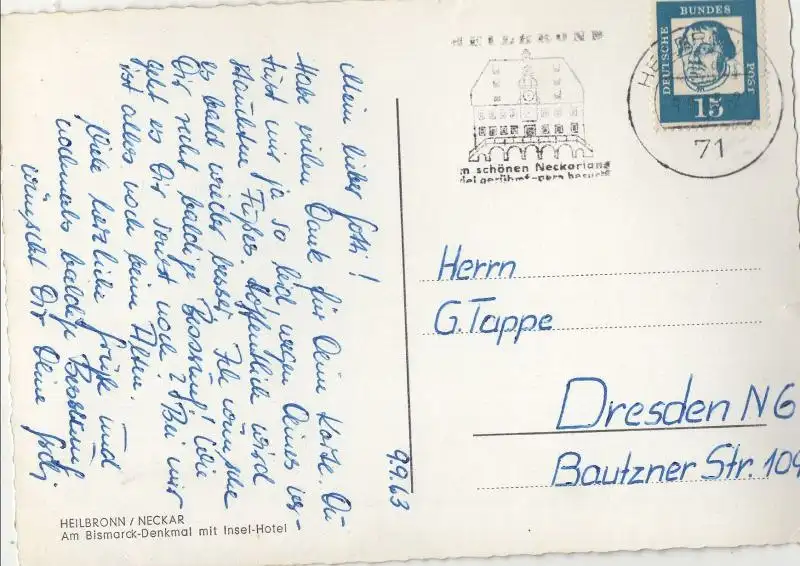 Mein lieber Gotti!
Habe vielen Dank für Deine Karte. Du
tust mir ja so leid wegen Deines ver-
stauchten Fußes. Hoffentlich wird
es bald wieder besser. Ich wünsche
Dir recht baldige Besserung! Wie
geht es Dir sonst noch? Bei mir
ist alles noch beim Alten.
Viele herzliche Grüße und
nochmals baldige Besserung
wünscht Dir Deine
9.9.63
HEILBRONN / NECKAR
Am Bismarck-Denkmal mit Insel-Hotel
HEILBRONN
m schönen Neckarland
viel gerühmt - gern besucht
71
DEUTSCHE BUNDESPOST
15
Herrn
G. Tappe
Dresden N6
Bautzner Str. 109